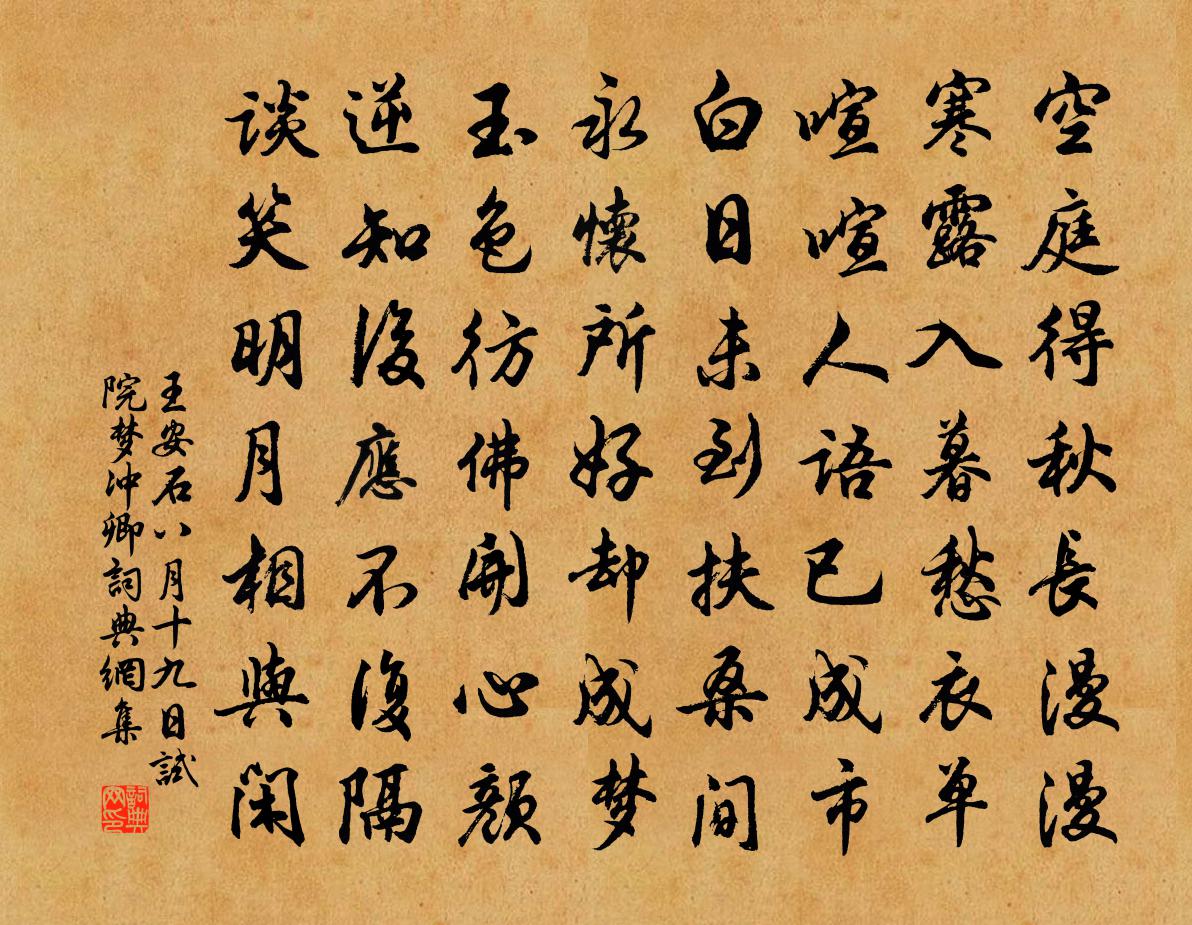 空庭得秋長漫漫
寒露入暮愁衣单
喧喧人語已成市
白日未到扶桑间
永懷所好却成梦
玉色彷佛開心顏
逆知後應不復隔
談笑明月相與閑
王安石八月十九日試
院梦冲卿詞典網集
詞典
网印